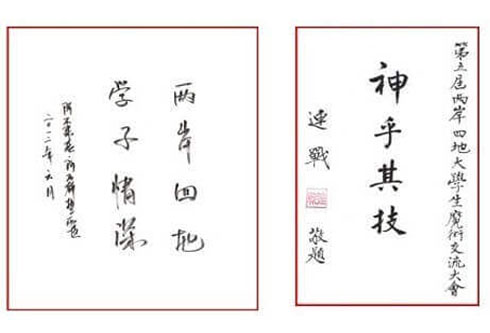 两岸四地
学子情深
二〇一二年六月
第五屆兩岸四地大學生魔術交流大會
神乎其技
連戰 敬題